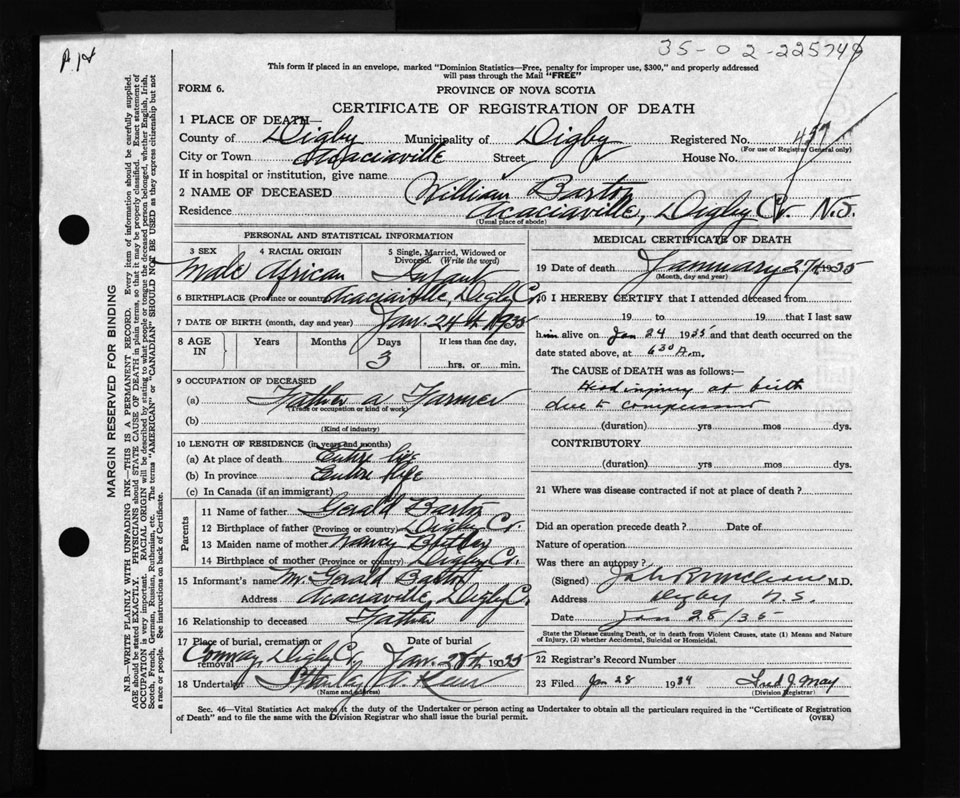 35-02-225749
This form if placed in an envelope, marked "Dominion Statistics—Free, penalty for improper use, $300," and properly addressed
will pass through the Mail "FREE"
FORM 6.
PROVINCE OF NOVA SCOTIA
CERTIFICATE OF REGISTRATION OF DEATH
1 PLACE OF DEATH—
County of Digby Municipality of Digby Registered No. 437
(For use of Registrar General only)
City or Town Acaciaville Street House No.
If in hospital or institution, give name
2 NAME OF DECEASED William Barton
Residence Acaciaville, Digby Co. N.S.
(Usual place of abode)
PERSONAL AND STATISTICAL INFORMATION
3 SEX 4 RACIAL ORIGIN 5 Single, Married, Widowed or Divorced. (Write the word)
Male African Infant
6 BIRTHPLACE (Province or country) Acaciaville, Digby Co.
7 DATE OF BIRTH (month, day and year) Jan. 24th 1935
8 AGE IN Years Months Days If less than one day,
3 hrs. or min.
9 OCCUPATION OF DECEASED
(a) Father a Farmer
(Trade or occupation or kind of work)
(b)
(Kind of industry)
10 LENGTH OF RESIDENCE (in years and months)
(a) At place of death Entire life
(b) In province Entire life
(c) In Canada (if an immigrant)
Parents
11 Name of father Gerald Barton
12 Birthplace of father (Province or country) Digby Co.
13 Maiden name of mother Nancy
14 Birthplace of mother (Province or country) Digby Co.
15 Informant's name Mr. Gerald Barton
Address Acaciaville, Digby Co.
16 Relationship to deceased Father
17 Place of burial, cremation or removal Date of burial
Conway, Digby Co. Jan. 28th 1935
18 Undertaker Stanley A.
(Name and address)
MEDICAL CERTIFICATE OF DEATH
19 Date of death January 27th 1935
(Month, day and year)
20 I HEREBY CERTIFY that I attended deceased from
19 to 19 that I last saw
him alive on Jan 24 1935 and that death occurred on the
date stated above, at 6 30 A.m.
The CAUSE of DEATH was as follows:—
Head injury at birth
due to compression
(duration) yrs mos dys.
CONTRIBUTORY
(duration) yrs mos dys.
21 Where was disease contracted if not at place of death?
Did an operation precede death? Date of
Nature of operation
Was there an autopsy?
(Signed) M.D.
Address Digby N.S.
Date Jan 28/35
State the Disease causing Death, or in death from Violent Causes, state (1) Means and Nature
of Injury, (2) whether Accidental, Suicidal or Homicidal.
22 Registrar's Record Number
23 Filed Jan 28 1934 Fred J. May
(Division Registrar)
Sec. 46—Vital Statistics Act makes it the duty of the Undertaker or person acting as Undertaker to obtain all the particulars required in the "Certificate of Registration
of Death" and to file the same with the Division Registrar who shall issue the burial permit.
(OVER)
MARGIN RESERVED FOR BINDING
N.B.—WRITE PLAINLY WITH UNFADING INK—THIS IS A PERMANENT RECORD. Every item of information should be carefully supplied.
AGE should be stated EXACTLY. PHYSICIANS should STATE CAUSE OF DEATH in plain terms, so that it may be properly classified. Exact statement of
OCCUPATION is very important. RACIAL ORIGIN will be described by stating to what people or tongue the deceased person belonged, whether English, Irish,
Scotch, French, German, Russian, Ruthenian, etc. The terms "AMERICAN" or "CANADIAN" SHOULD NOT BE USED as they express citizenship but not
a race or people. See instructions on back of Certificate.